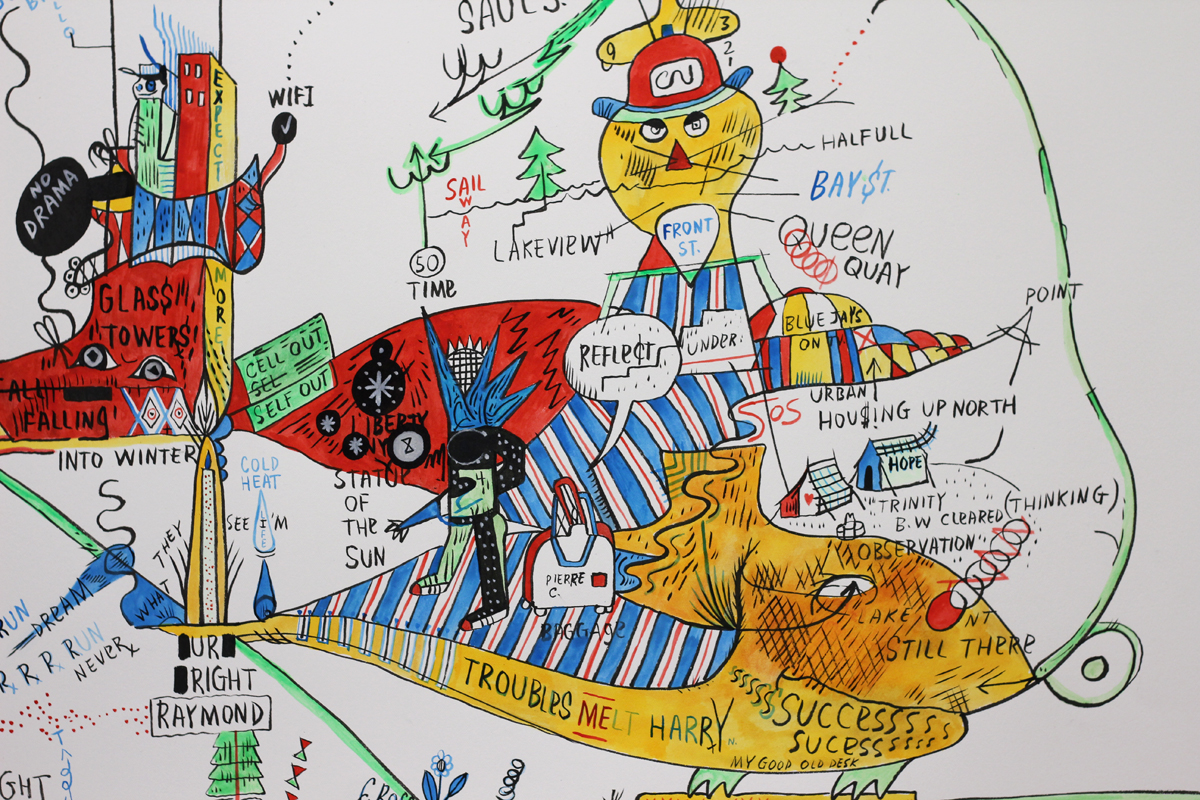 SAULS.
9
3
2
1
CN
EXPECT
WIFI
NO
DRAMA
HALFULL
SAIL
WAY
BAY $T.
LAKEVIEW
FRONT
ST.
QUEEN
QUAY
50
TIME
MORE
GLAS$
TOWERS
POINT
BLUE JAYS
ON
CELL OUT
SEL
SELF OUT
REFLECT
UNDER.
ALL
FALLING
LIBERTY
NY
SOS
URBAN
HOU$ING UP NORTH
INTO WINTER
STATUE
OF
THE
SUN
COLD
HEAT
HOPE
TRINITY
B.W CLEARED
(THINKING)
OBSERVATION
THEY
SEE I'M
PIERRE
C.
BAGGAGE
WHAT
RUN
DREAM
R R R RUN
NEVER
LAKE
NT
STILL THERE
UR
RIGHT
RAYMOND
TROUBLES MELT HARRY
N.
SSSSSSUCCESSSSS
SUCESSSSSSS
MY GOOD OLD DESK
GHT